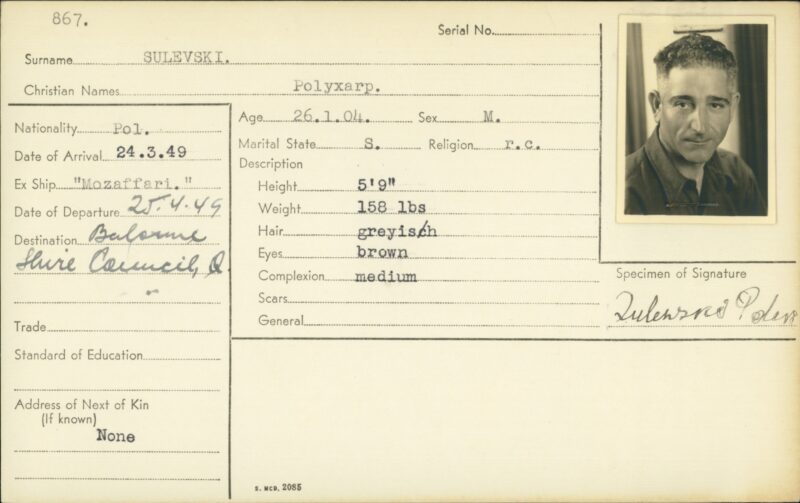 867.
Serial No.
Surname SULEVSKI.
Christian Names Polyxarp.
Nationality Pol.
Date of Arrival 24.3.49
Ex Ship "Mozaffari."
Date of Departure 25.4.49
Destination Balonne
Shire Council, Q.
Trade
Standard of Education
Address of Next of Kin
(If known)
None
Age 26.1.04. Sex M.
Marital State S. Religion r.c.
Description
Height 5'9"
Weight 158 lbs
Hair greyish
Eyes brown
Complexion medium
Scars
General
Specimen of Signature
Zulewski
S. MCD. 2085